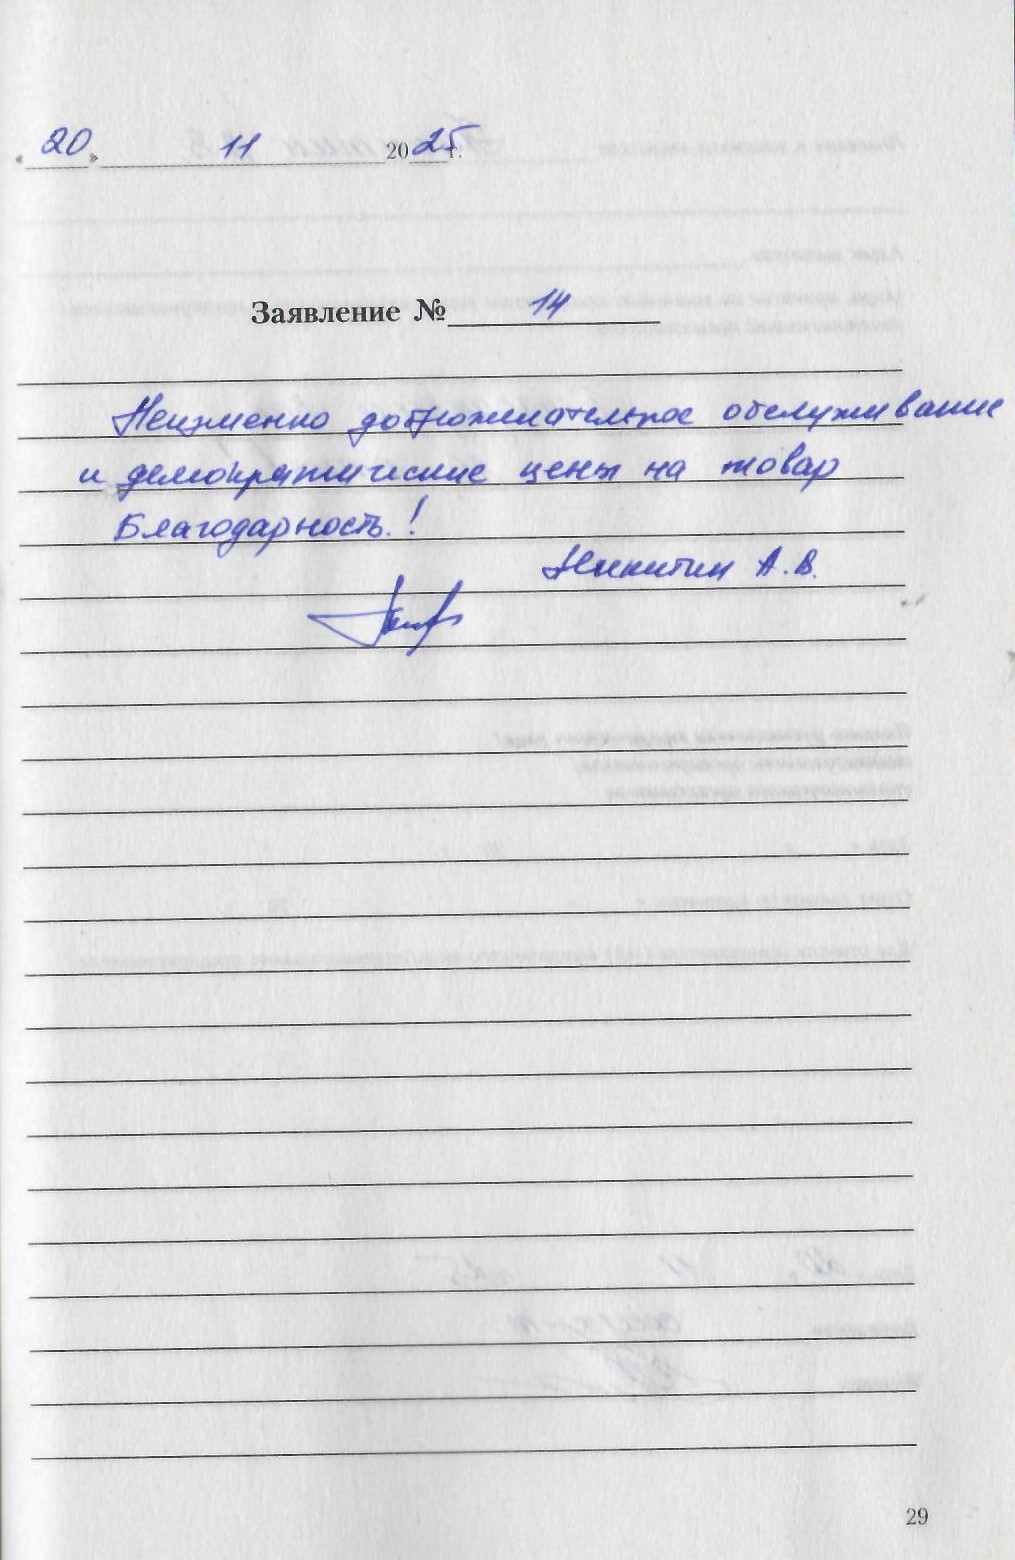 «20» 11 2025 г.
Заявление № 14
Неизменно доброжелательное обслуживание
и демократические цены на товар
Благодарность!
Никитин А.В.
29